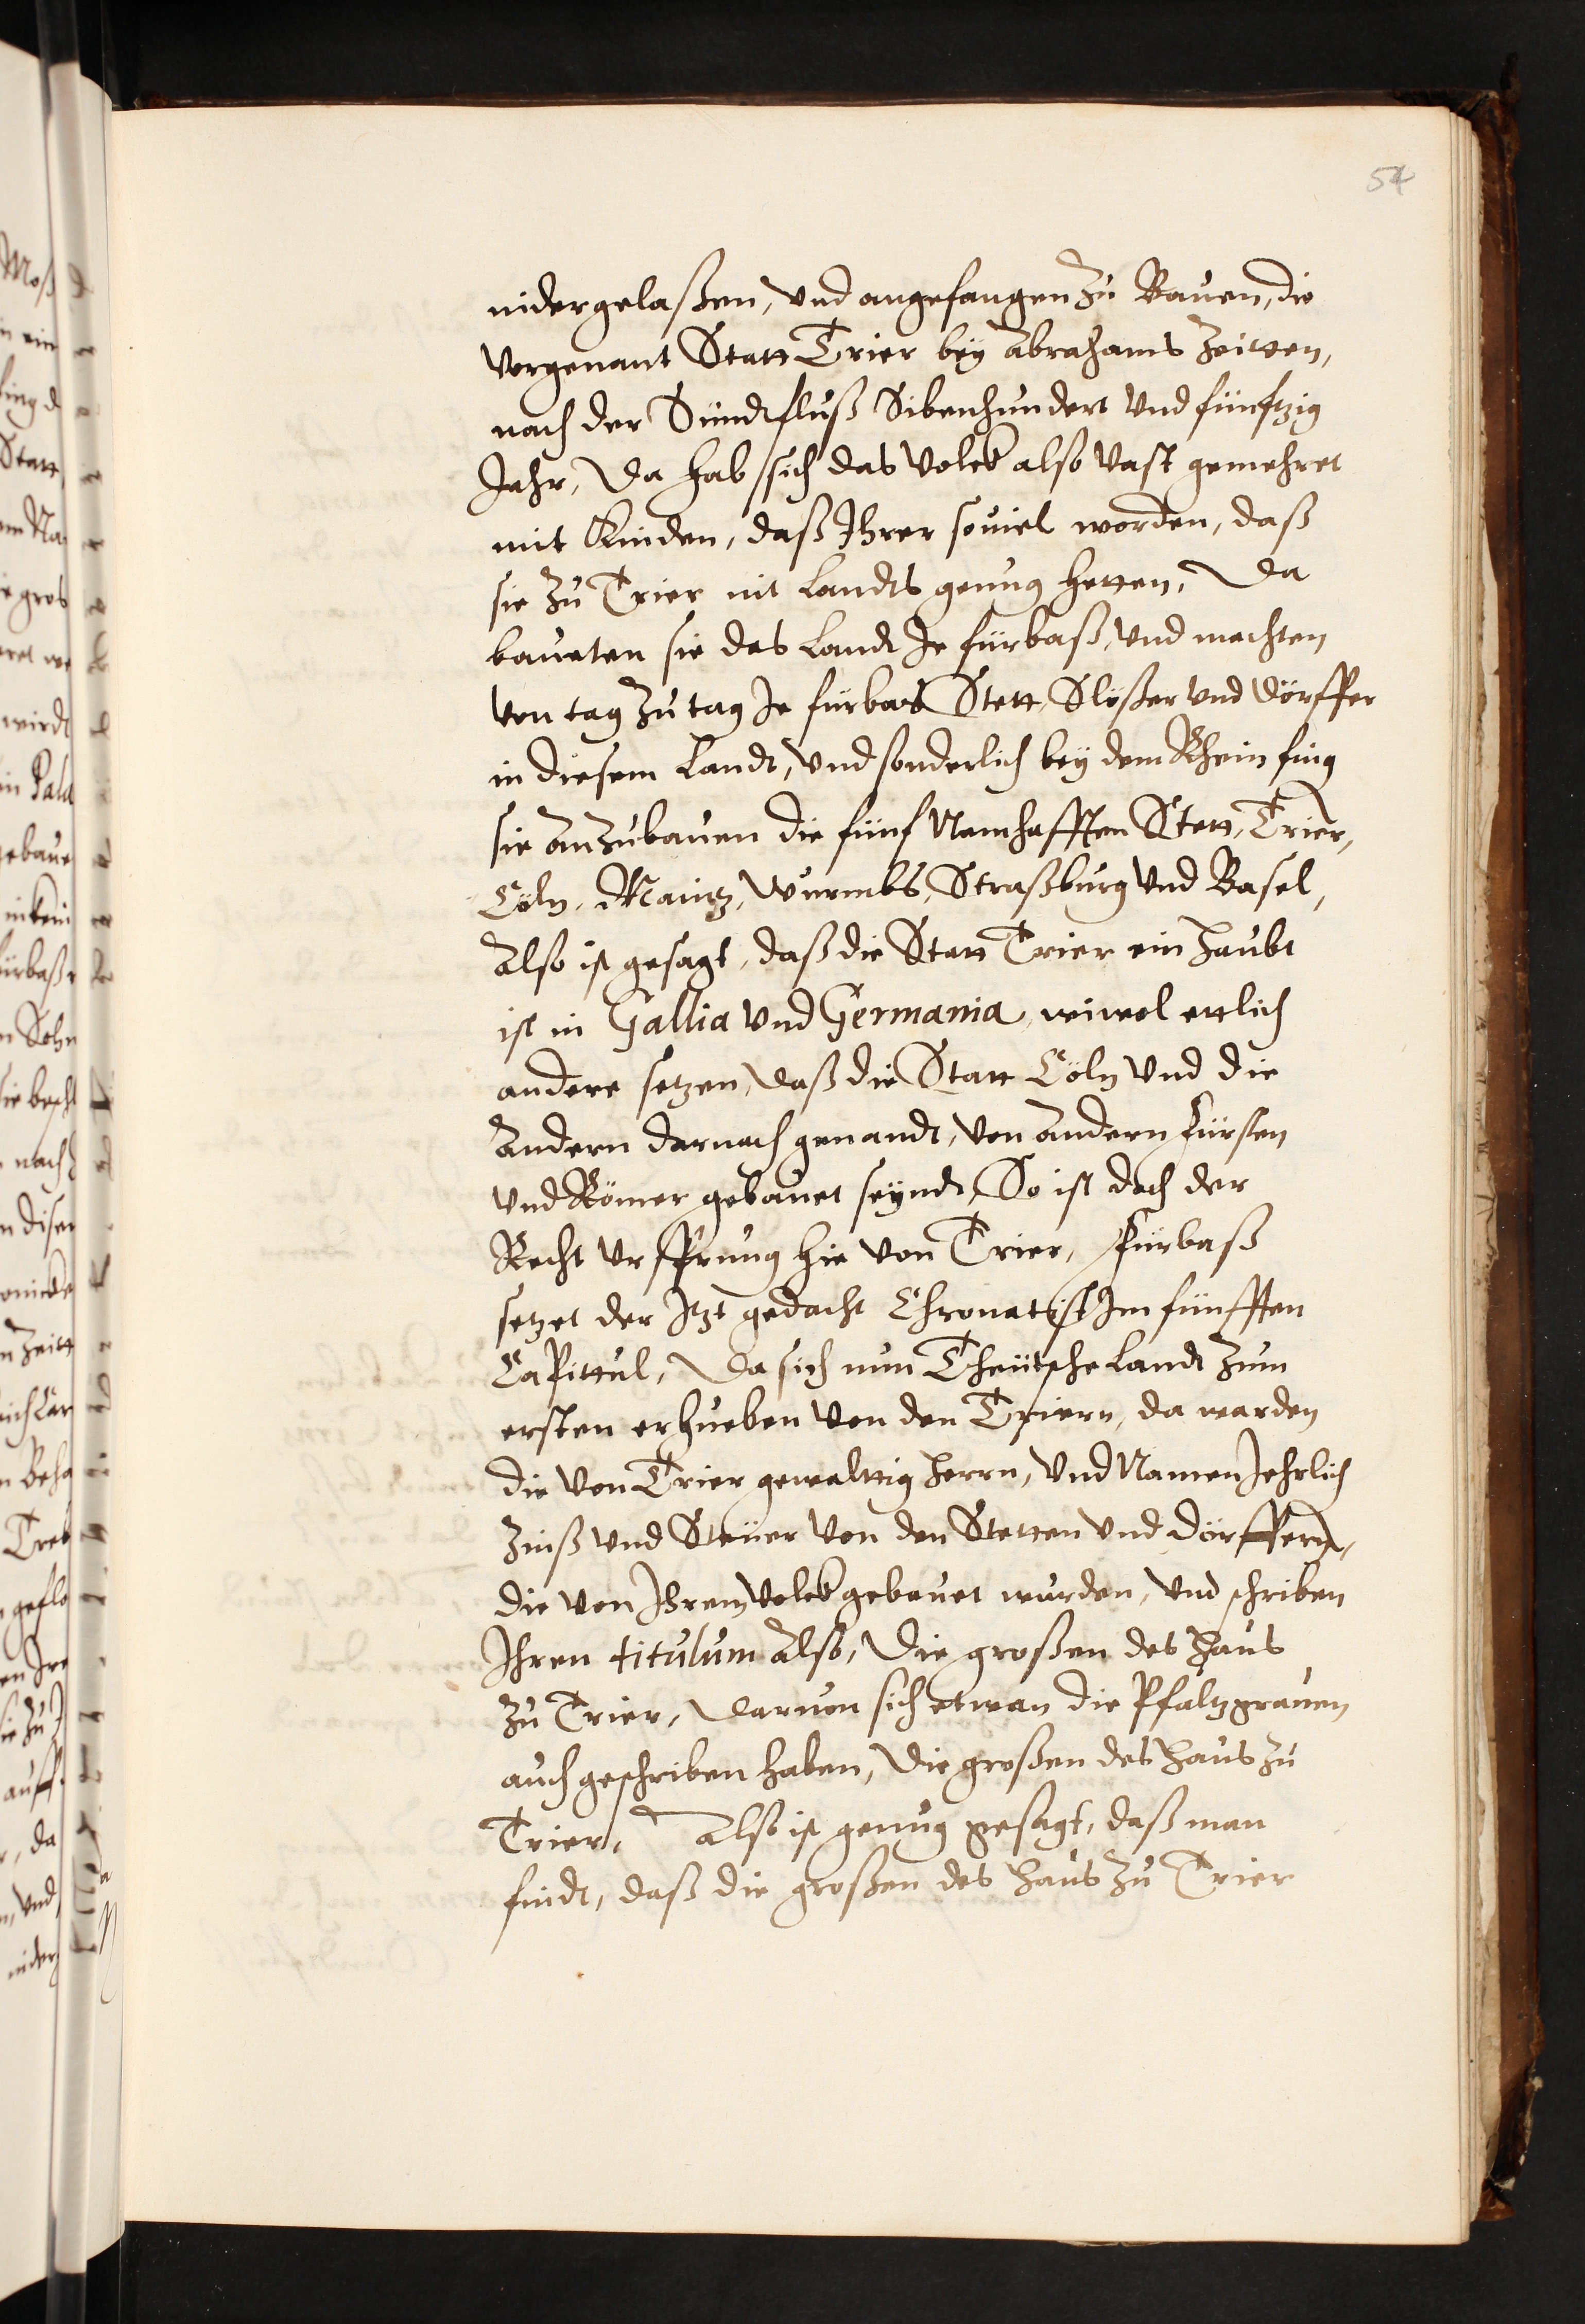 54
nidergelaßen, Vnd angefangen zu Bauen, die
Vorgenant Statt Trier bey Abrahams Zeitten,
nach der Sündtfluß Sibenhundert Vnd fünftzig
Jahr, Da hab sich das Volck also Vast gemehret
mit Kinden, daß Ihrer souiel worden, daß
sie zu Trier nit Landts genug hetten, Da
baueten sie das Landt Je fürbaß, Vnd machten
Von tag zu tag Je fürbas Stett, Slößer Vnd Dörffer
in diesem Landt, Vnd sonderlich bey dem Rhein fing
sie Anzubauen die fünf Namhafften Stett, Trier,
Cöln, Maintz, Wurmbs, Straßburg Vnd Basel,
Also ist gesagt, daß die Statt Trier ein haubt
ist in Gallia Vnd Germania, wiwol ettlich
andere setzen, daß die Statt Cöln Vnd die
Andern darnach genandt, Von Andern Fürsten
Vnd Römer gebauet seyndt, So ist doch der
Recht Vrsprung hie Von Trier, Fürbaß
setzet der Itzt gedacht Chronatist Im fünfften
Capittul, Da sich nun Theütsche Landt zum
ersten erhueben Von den Triern, da warden
die Von Trier gewalttig herrn, Vnd Namen Jehrlich
Zinß Vnd Steüer Von den Stetten Vnd Dörffern,
die Von Ihrem Volck gebauet wurden, Vnd schriben
Ihren titulum Also, Die großen des haus
zu Trier, Daruon sich etwan die Pfaltzgrauen
auch geschriben haben, Die großen des haus zu
Trier, Also ist genug gesagt, daß man
findt, daß die großen des haus zu Trier